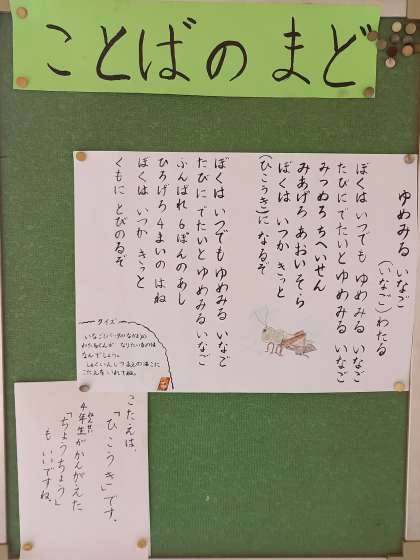 ことばのまど
ゆめみる いなご
(いなご)わたる
ぼくは いつでも ゆめみる いなご
たびに でたいと ゆめみる いなご
みつめろ ちへいせん
みあげろ あおいそら
ぼくは いつか きっと
(ひこうき)に なるぞ
ぼくは いつでも ゆめみる いなご
たびに でたいと ゆめみる いなご
ふんばれ 6ぽんのあし
ひろげろ 4まいの はね
ぼくは いつか きっと
くもに とびのるぞ
クイズ
なんでしょう。
こたえを いれてね。
こたえは、
「ひこうき」です。
4年生がかんがえた
「ちょうちょう」
も いいですね。